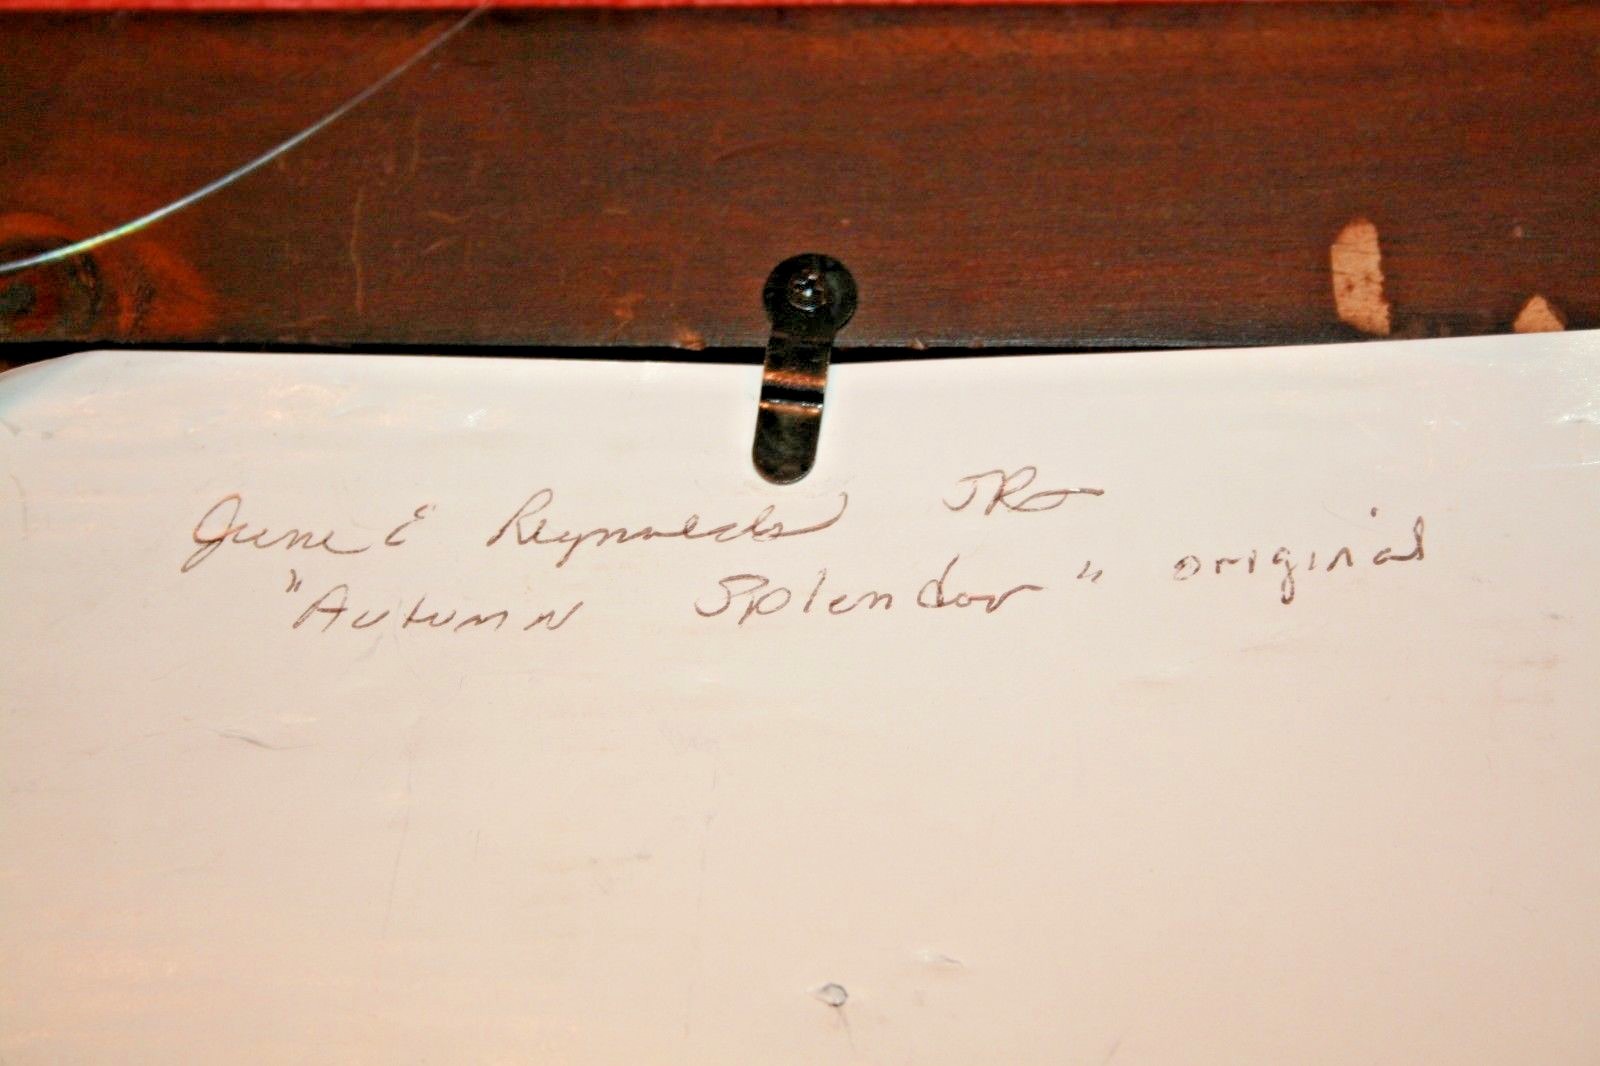 June E Reynolds JR
"Autumn Splendor" original